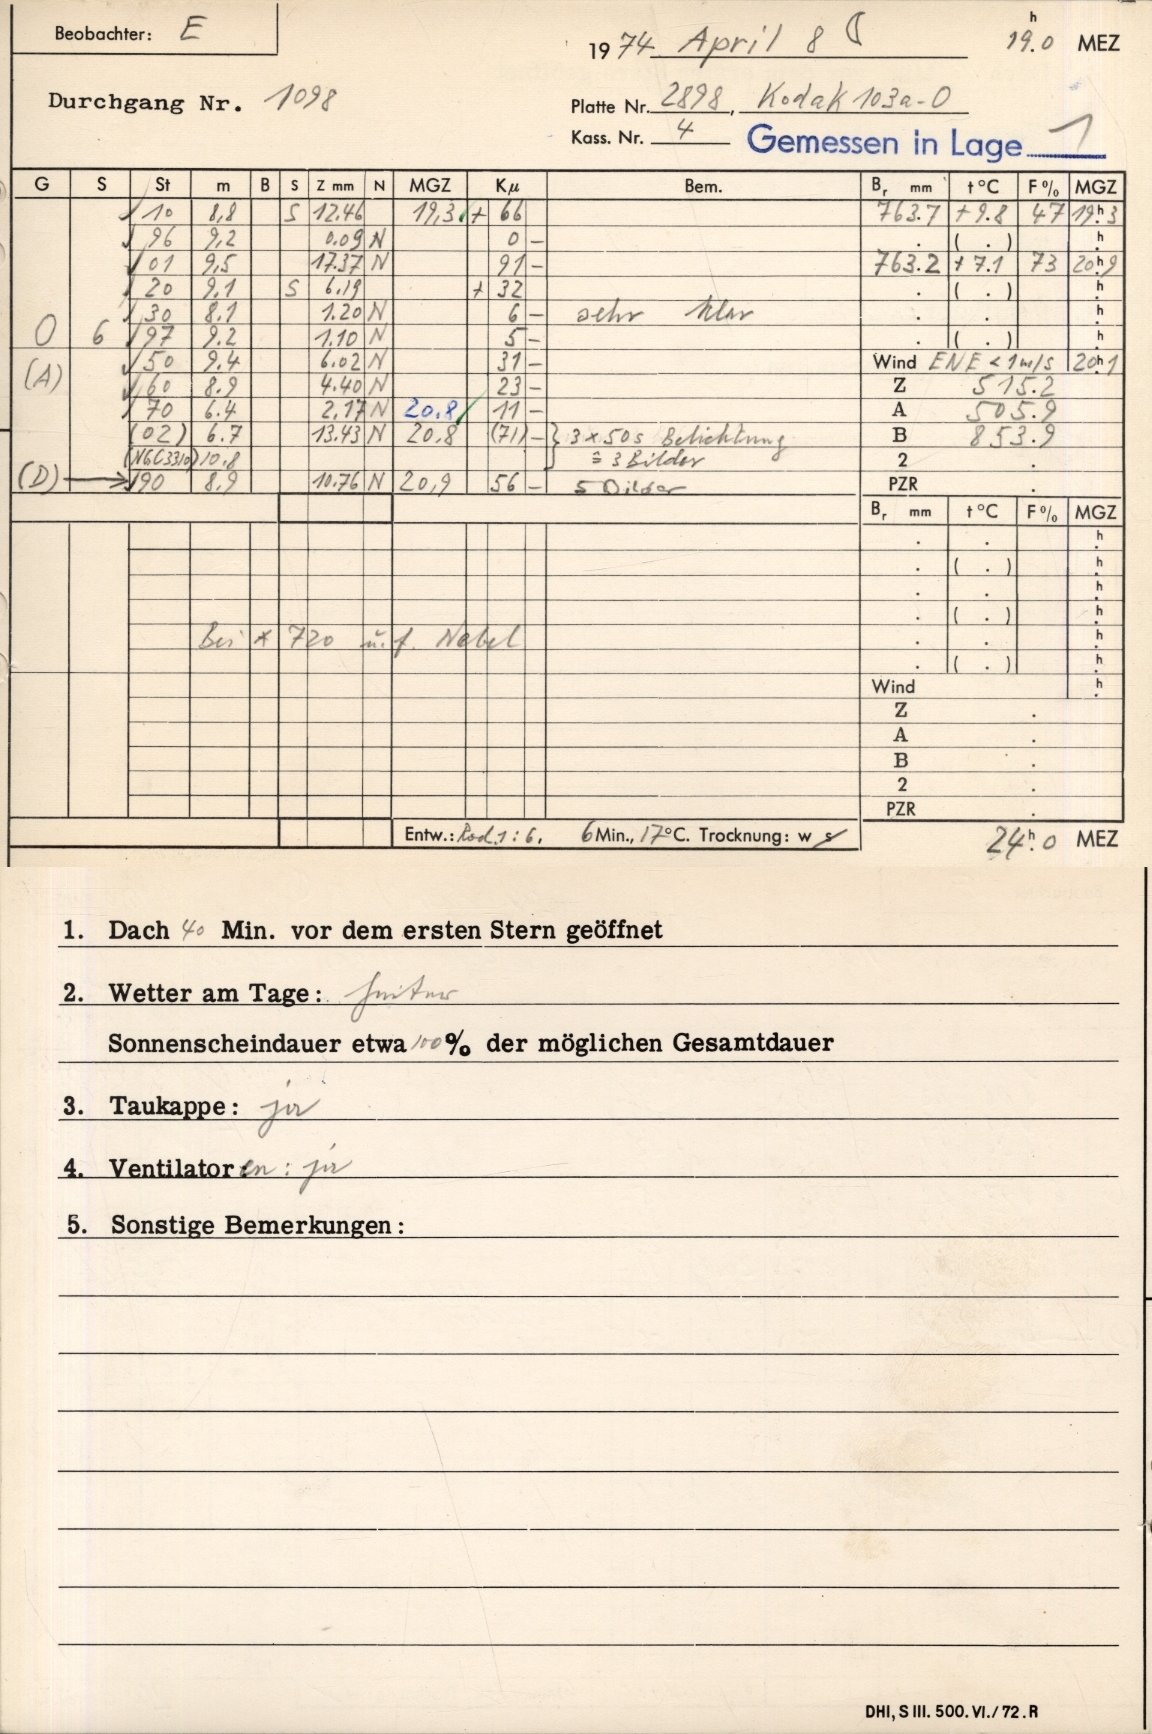 Beobachter: E
1974 April 8 ☾ 19h.0 MEZ
Durchgang Nr. 1098
Platte Nr. 2898, Kodak 103a-O
Kass. Nr. 4 Gemessen in Lage 1
G S St m B S Z mm N MGZ Kμ Bem. Br mm t°C F% MGZ
✓ 10 8,8 S 12.46 19,3 ✓ + 66 763.7 +9.8 47 19h.3
✓ 96 9,2 0.09 N 0 – . ( . ) h.
✓ 01 9,5 17.37 N 91 – 763.2 +7.1 73 20h.9
✓ 20 9.1 S 6.19 + 32 . ( . ) h.
✓ 30 8.1 1.20 N 6 – sehr klar . . h.
O 6 ✓ 97 9.2 1.10 N 5 – . ( . ) h.
(A) ✓ 50 9.4 6.02 N 31 – Wind ENE < 1 m/s 20h.1
✓ 60 8.9 4.40 N 23 – Z 515.2
✓ 70 6.4 2.17 N 20.8 ✓ 11 – A 505.9
(02) 6.7 13.43 N 20.8 (71) – } 3 x 50s Belichtung B 853.9
(NGC3310) 10.8 ≙ 3 Bilder 2 .
(D) → ✓ 90 8.9 10.76 N 20,9 56 – 5 Bilder PZR .
Br mm t°C F% MGZ
. . h.
. ( . ) h.
. . h.
. ( . ) h.
Bei * 720 u.f. Nebel . . h.
. ( . ) h.
Wind h.
Z .
A .
B .
2 .
PZR .
Entw.: Rod. 1:6, 6 Min., 17°C. Trocknung: w s 24h.0 MEZ
1. Dach 40 Min. vor dem ersten Stern geöffnet
2. Wetter am Tage: heiter
Sonnenscheindauer etwa 100% der möglichen Gesamtdauer
3. Taukappe: ja
4. Ventilatoren: ja
5. Sonstige Bemerkungen:
DHI, S III. 500. VI./72. R